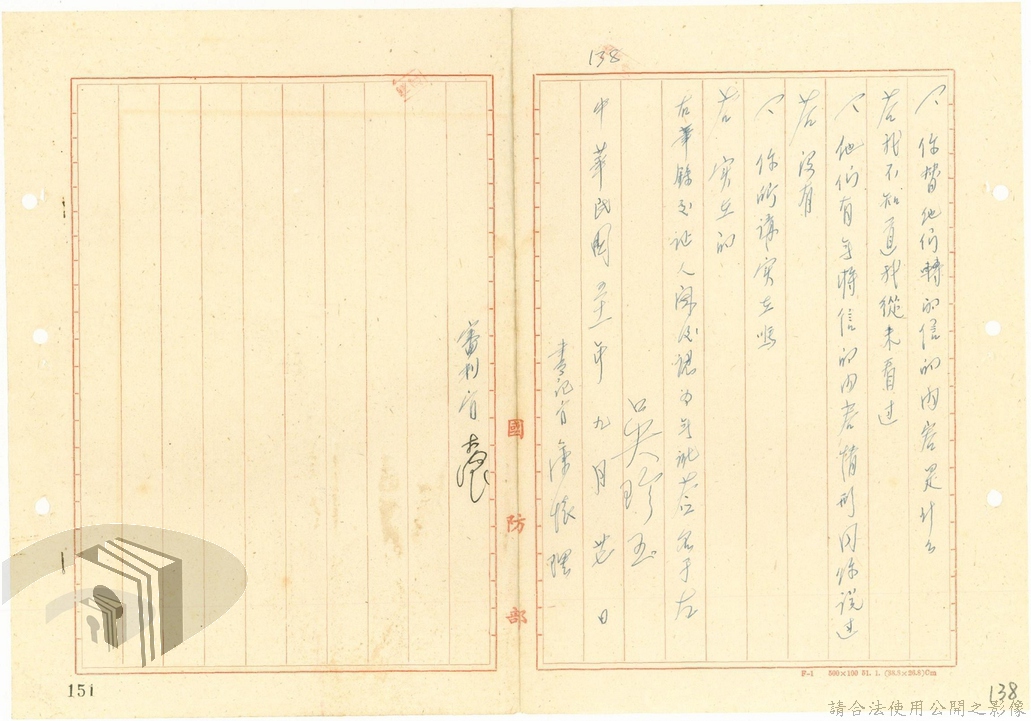 138
㆟ 你替他們轉的信的內容是什么
答 我不知道我從未看过
㆟ 他們有無將信的內容情形同你説过
答 沒有
㆟ 你所講实在嗎
答 实在的
右筆錄交証人閱後認為無訛簽名于左
吳珍玉
中華民國五十一年九月廿日
書記官
審判官
國防部
F-1 500×100 51. 1. (38.8×26.8)Cm
151
138
請合法使用公開之影像